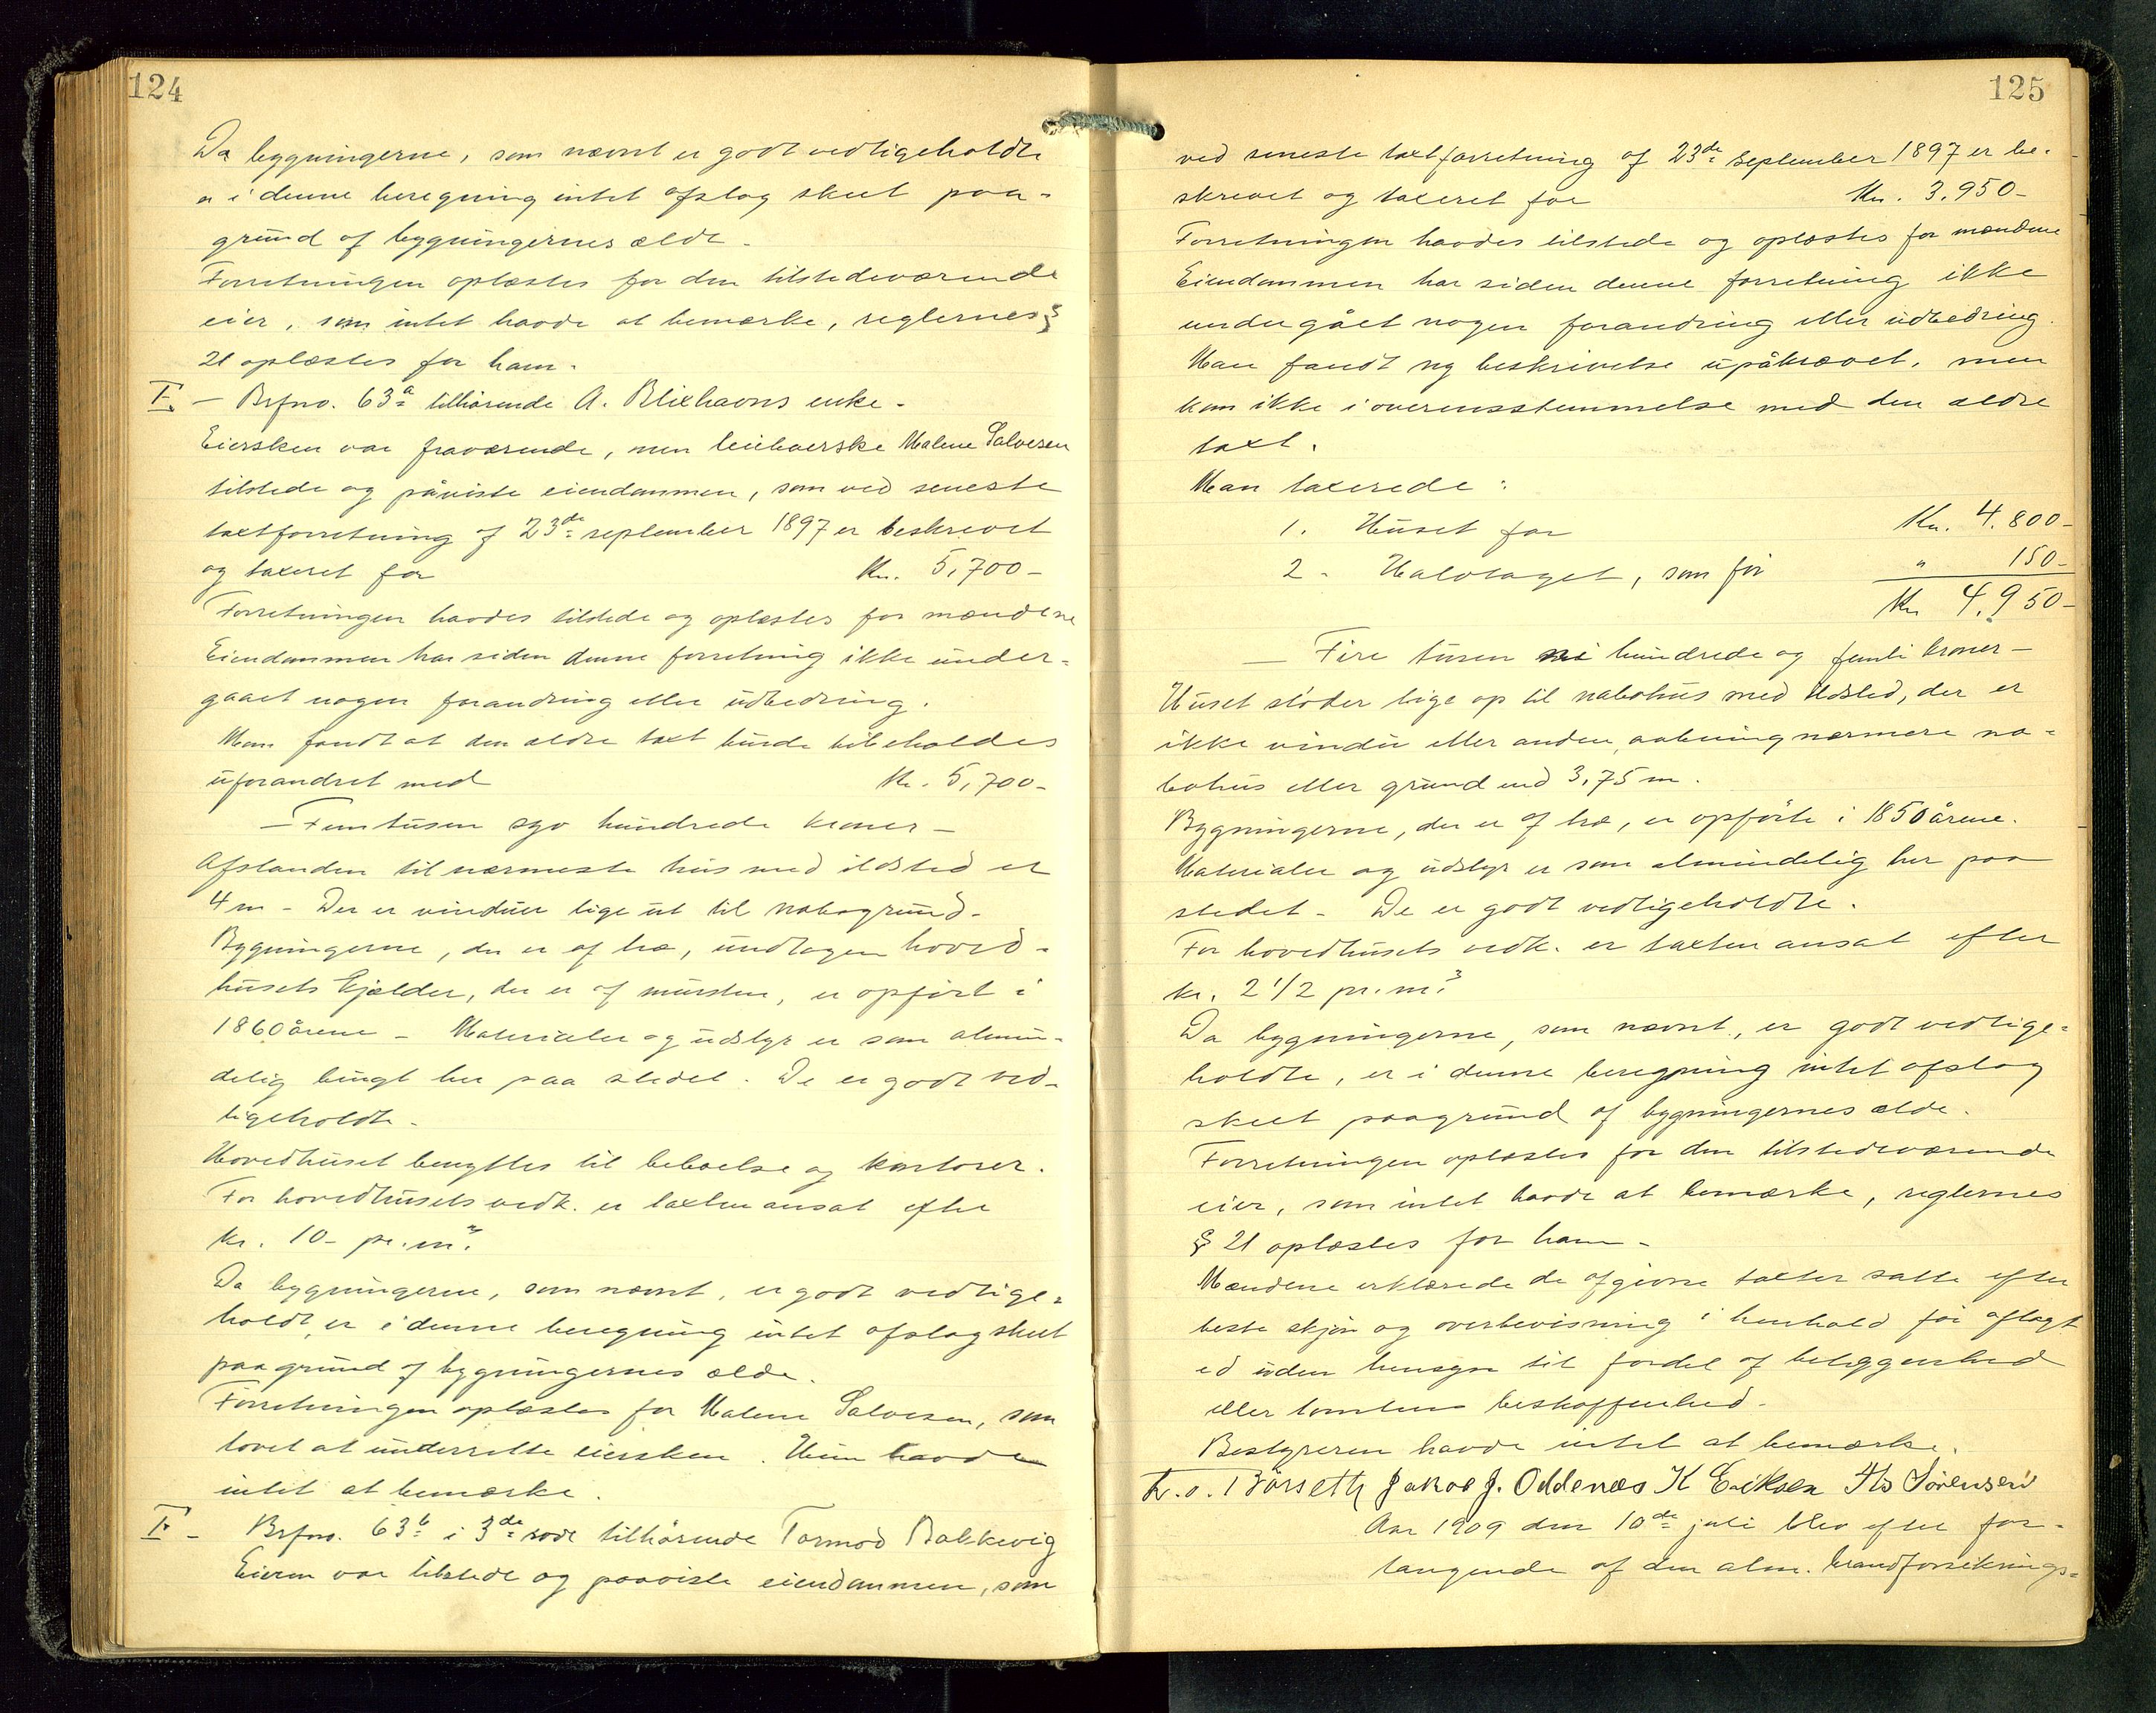 124
Da bygningerne, som nævnt er godt vedligeholdte
er i denne beregning intet afslag skeet paa-
grund af bygningernes ælde.
Forretningen oplæstes for den tilstedeværende
eier, som intet havde at bemærke, reglernes §
21 oplæstes for ham.
I. - Brfno. 63a tilhørende A. Blixhavns enke.
Eiersken var fraværende, men leieboerske Malene Salvesen
tilstede og påviste eiendommen, som ved seneste
taxtforretning af 23de september 1897 er beskrevet
og taxeret for Kr. 5,700-
Forretningen havdes tilstede og oplæstes for mændene
Eiendommen har siden denne forretning ikke under-
gaaet nogen forandring eller udbedring.
Man fandt at den ældre taxt burde bibeholdes
uforandret med Kr. 5,700-
- Femtusen syv hundrede kroner -
Afstanden til nærmeste hus med ildsted er
4 m - Der er vinduer lige ut til nabogrund.
Bygningerne, der er af træ, undtagen hoved-
husets kjælder, der er af mursten, er opført i
1860 årene - Materialer og udstyr er som almin-
delig brugt her paa stedet. De er godt ved-
ligeholdt.
Hovedhuset benyttes til beboelse og kontorer.
For hovedhusets vedk. er taxten ansat efter
kr. 10- pr. m³.
Da bygningerne, som nævnt, er godt vedlige-
holdt, er i denne beregning intet afslag skeet
paa grund af bygningernes ælde.
Forretningen oplæstes for Malene Salvesen, som
lovet at underrette eiersken. Hun havde
intet at bemærke.
I. - Brfno. 63b i 3de rode tilhørende Tormod Bakkevig
Eieren var tilstede og paaviste eiendommen, som
125
ved seneste taxtforretning af 23de september 1897 er be-
skrevet og taxeret for Kr. 3.950-
Forretningen havdes tilstede og oplæstes for mændene
Eiendommen har siden denne forretning ikke
undergået nogen forandring eller udbedring.
Man fandt ny beskrivelse upåkrævet, men
kom ikke i overensstemmelse med den ældre
taxt.
Man taxerede:
1. Huset for Kr. 4.800-
2. Halvtaget, som før " 150-
Kr 4.950-
- Fire tusen ni hundrede og femti kroner -
Huset støder lige op til nabohus med ildsted, der er
ikke vindu eller anden aabning nærmere na-
bohus eller grund end 3,75 m.
Bygningerne, der er af træ, er opførte i 1850 årene.
Materialer og udstyr er som almindelig her paa
stedet - De er godt vedligeholdte.
For hovedhusets vedk. er taxten ansat efter
kr. 2 1/2 pr. m³.
Da bygningerne, som nævnt, er godt vedlige-
holdte, er i denne beregning intet afslag
skeet paagrund af bygningernes ælde.
Forretningen oplæstes for den tilstedeværende
eier, som intet havde at bemærke, reglernes
§ 21 oplæstes for ham.
Mændene erklærede de afgivne taxter satte efter
beste skjøn og overbevisning i henhold før aflagt
ed uden hensyn til fordel af beliggenhed
eller tomtens beskaffenhed.
Bestyreren havde intet at bemærke.
Børseth Jakob J. Oddenæs K Eriksen Hs Sørensen
Aar 1909 den 10de juli blev efter for-
langende af den alm. brandforsikrings-